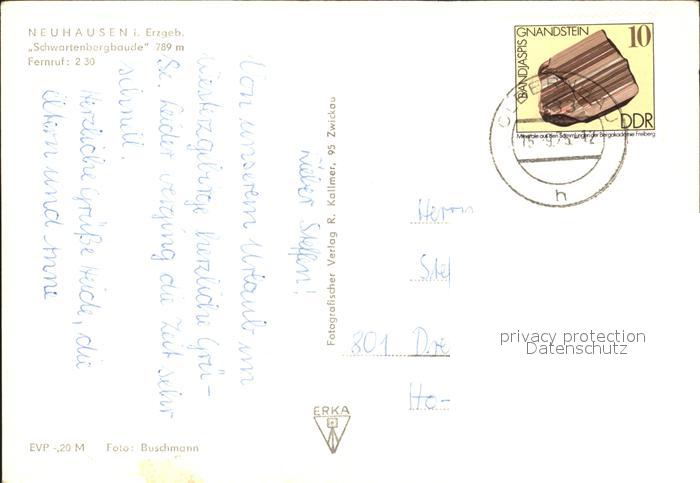 NEUHAUSEN i. Erzgeb.
„Schwartenbergbaude" 789 m
Fernruf: 2 30
Lieber Steffen!
Von unserem Urlaub im
Westerzgebirge herzliche Grü-
ße. Leider verging die Zeit sehr
schnell.
Herzliche Grüße Heide, die
Eltern und Anne
Fotografischer Verlag R. Kallmer, 95 Zwickau
BANDJASPIS
GNANDSTEIN
10
DDR
Minerale aus den Sammlungen der Bergakademie Freiberg
h
Herrn
Stef
801 Dre
Ho-
privacy protection
Datenschutz
ERKA
EVP -,20 M Foto: Buschmann